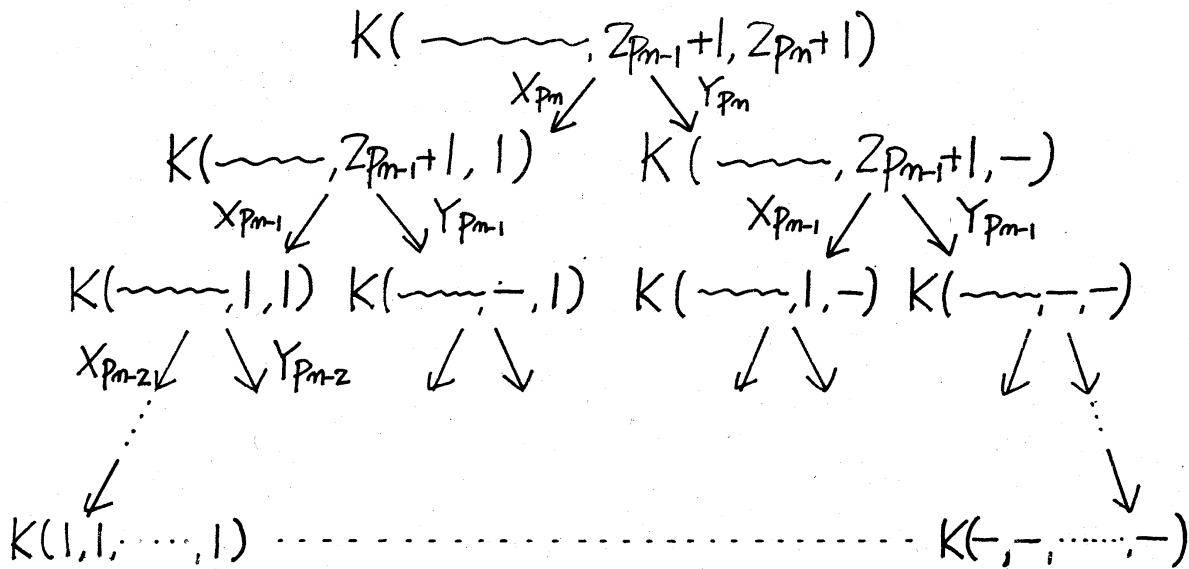 K( ~~~~, 2p_{n-1}+1, 2p_n+1)
X_{p_n} Y_{p_n}
K(~~~~, 2p_{n-1}+1, 1) K( ~~~~, 2p_{n-1}+1, −)
X_{p_{n-1}} Y_{p_{n-1}} X_{p_{n-1}} Y_{p_{n-1}}
K(~~~~, 1, 1) K(~~~~, −, 1) K( ~~~~, 1, −) K(~~~~, −, −)
X_{p_{n-2}} Y_{p_{n-2}}
K(1, 1, ······, 1) - - - - - - - - - - K(−, −, ······, −)